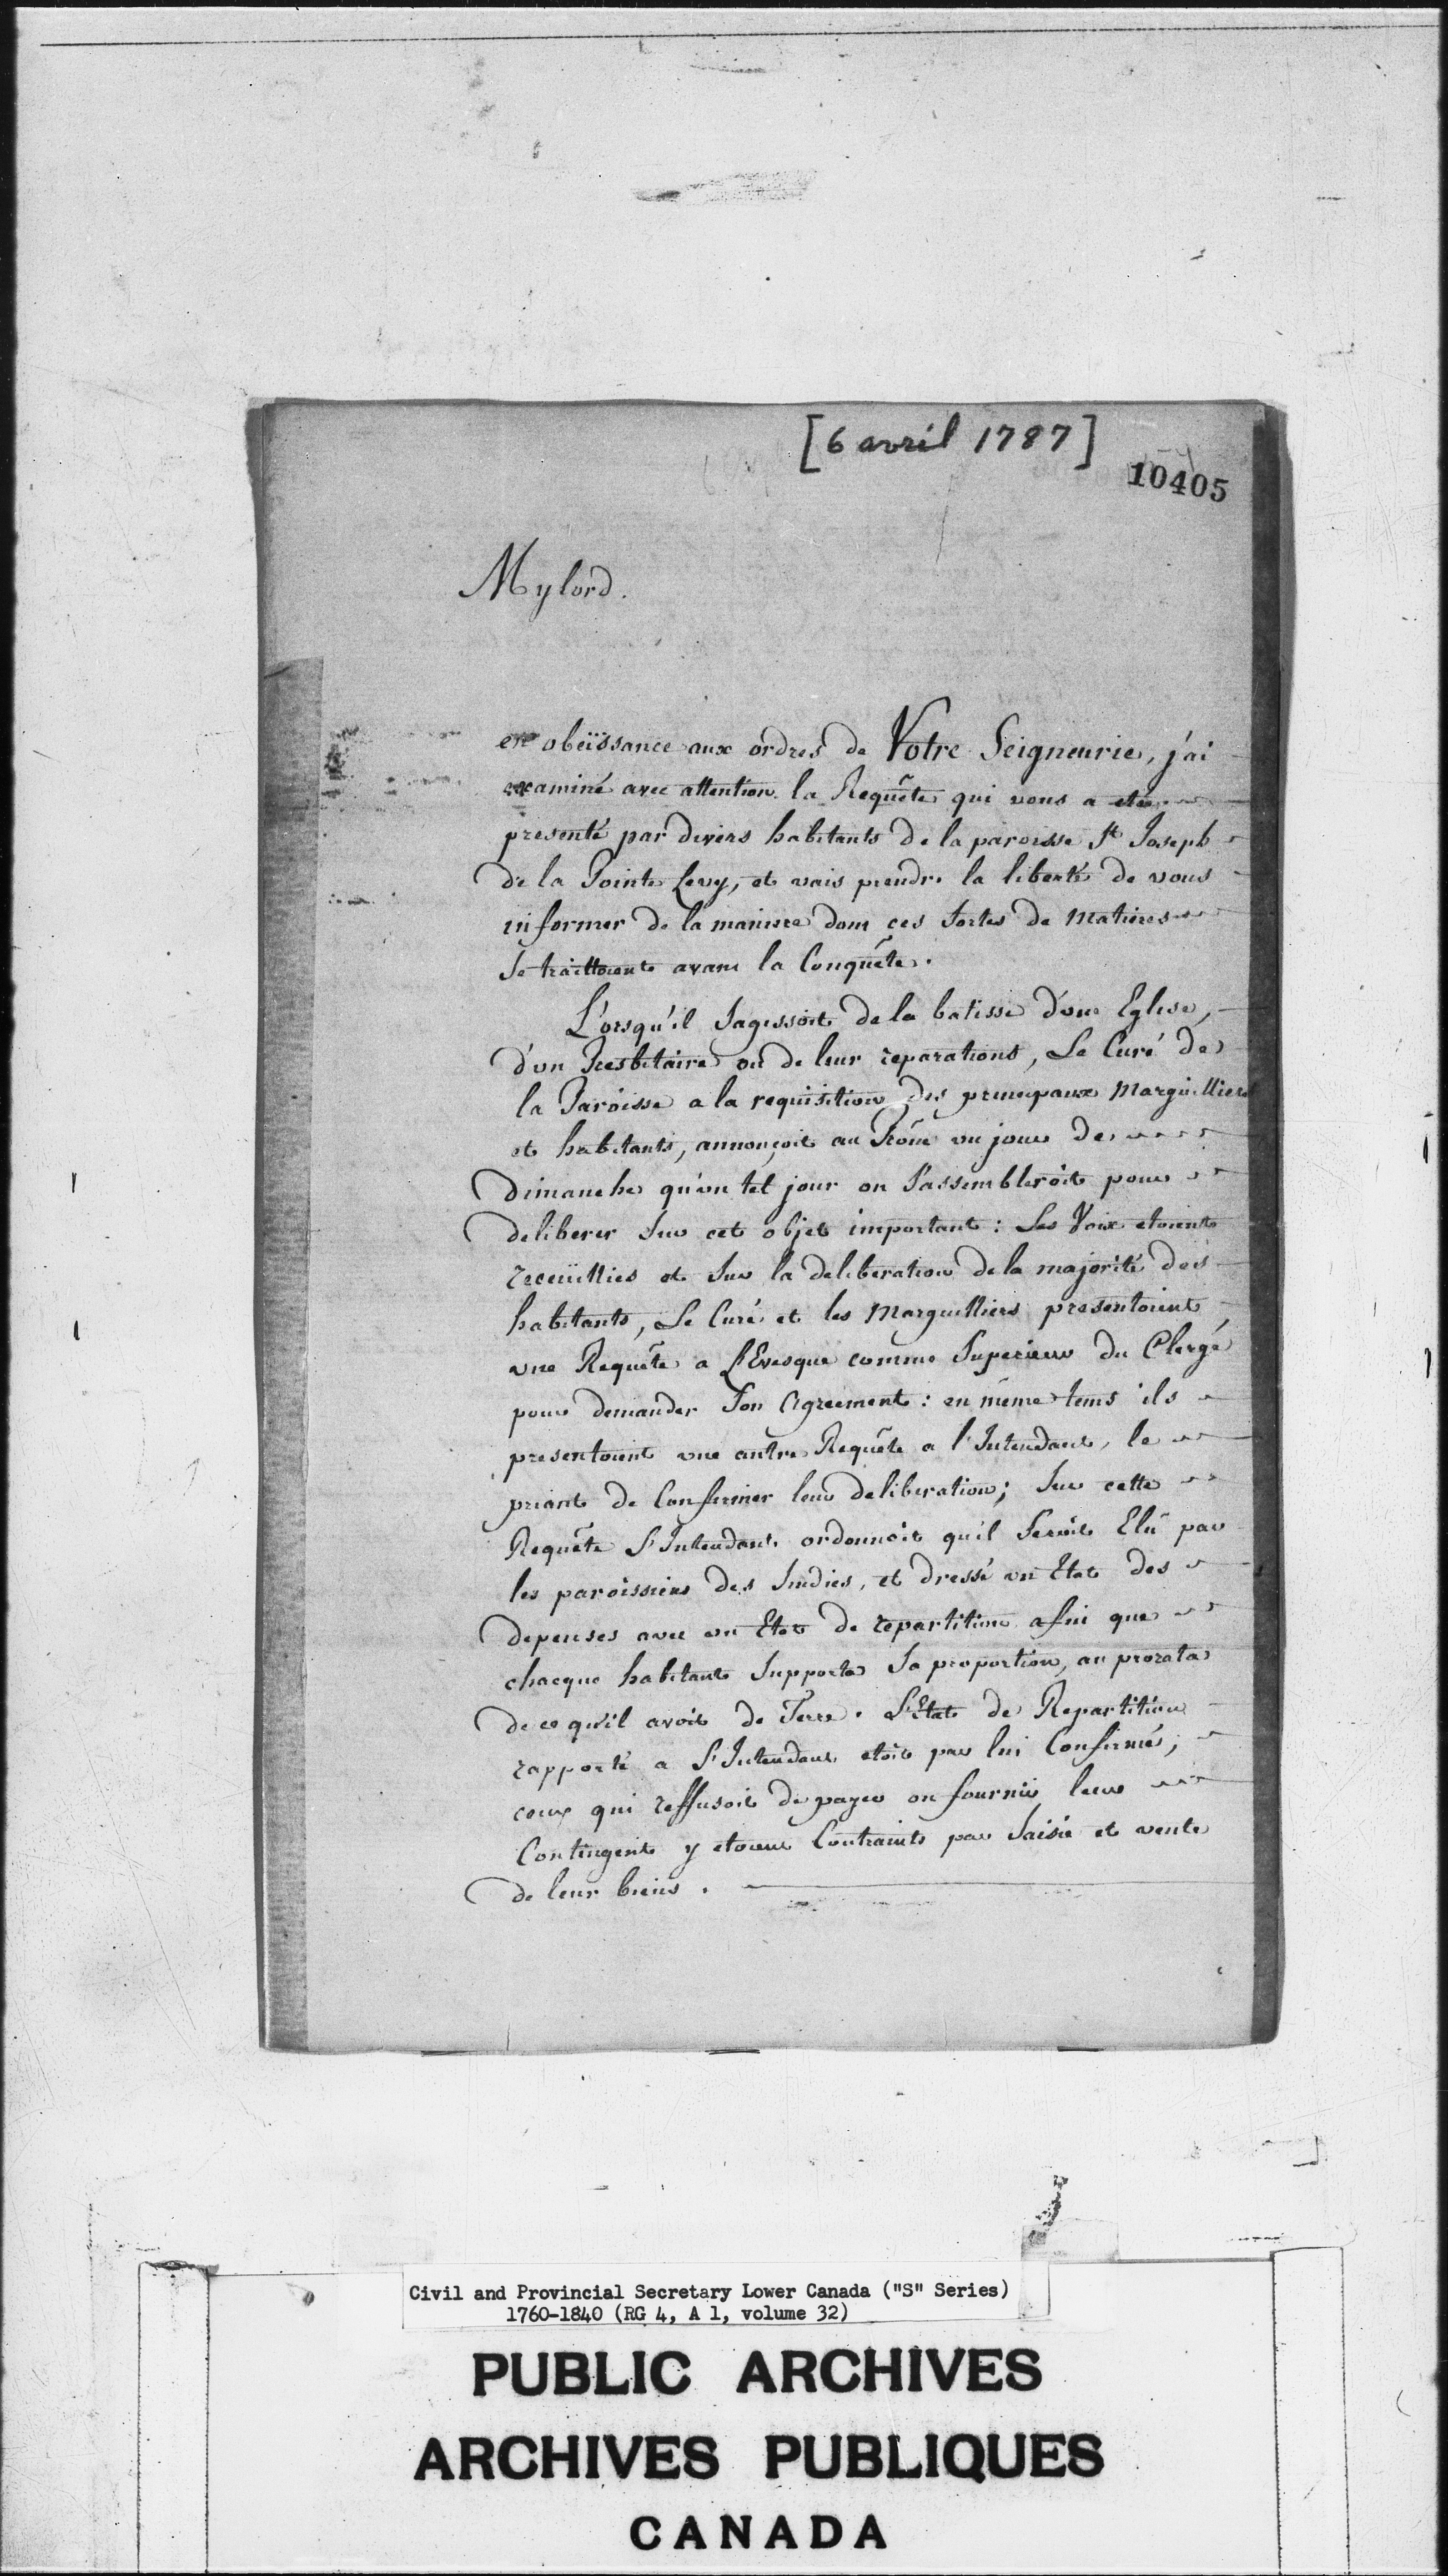 [6 avril 1787]
10405
Mylord.
en obeïssance aux ordres de Votre Seigneurie, j'ai
examiné avec attention la Requête qui vous a eté
presenté par divers habitants de la paroisse St Joseph
de la Pointe Levy, et vais prendre la liberté de vous
informer de la maniere dont ces sortes de matieres
se traittoient avant la Conquête.
L'orsqu'il sagissoit de la batisse d'une Eglise,
d'un Presbitaire ou de leur reparations, Le Curé de
la Paroisse a la requisition des principaux Marguilliers
et habitants, annonçoit au Prône un jour de
Dimanche qu'un tel jour on s'assembleroit pour
deliberer sur cet objet important : Les Voix etoient
receuillies et sur la deliberation de la majorité des
habitants, Le Curé et les Marguilliers presentoient
une Requête a L'Evesque comme Superieur du Clergé
pour demander son Agreement : en même tems ils
presentoient une autre Requête a l'Intendant, le
priant de Confirmer leur deliberation ; sur cette
Requête L'Intendant ordonnoit qu'il seroit Elû par
les paroissiens des Sindics, et dressé un Etat des
depenses avec un Etat de repartition afin que
chacque habitant supporta sa proportion, au prorata
de ce qu'il avoit de Terre. L'Etat de Repartition
rapporté a L'Intendant etoit par lui Confirmés,
ceux qui reffusoit de payer ou fournir leur
Contingent y etoient Contraints par saisie et vente
de leur biens.
Civil and Provincial Secretary Lower Canada ("S" Series)
1760-1840 (RG 4, A 1, volume 32)
PUBLIC ARCHIVES
ARCHIVES PUBLIQUES
CANADA